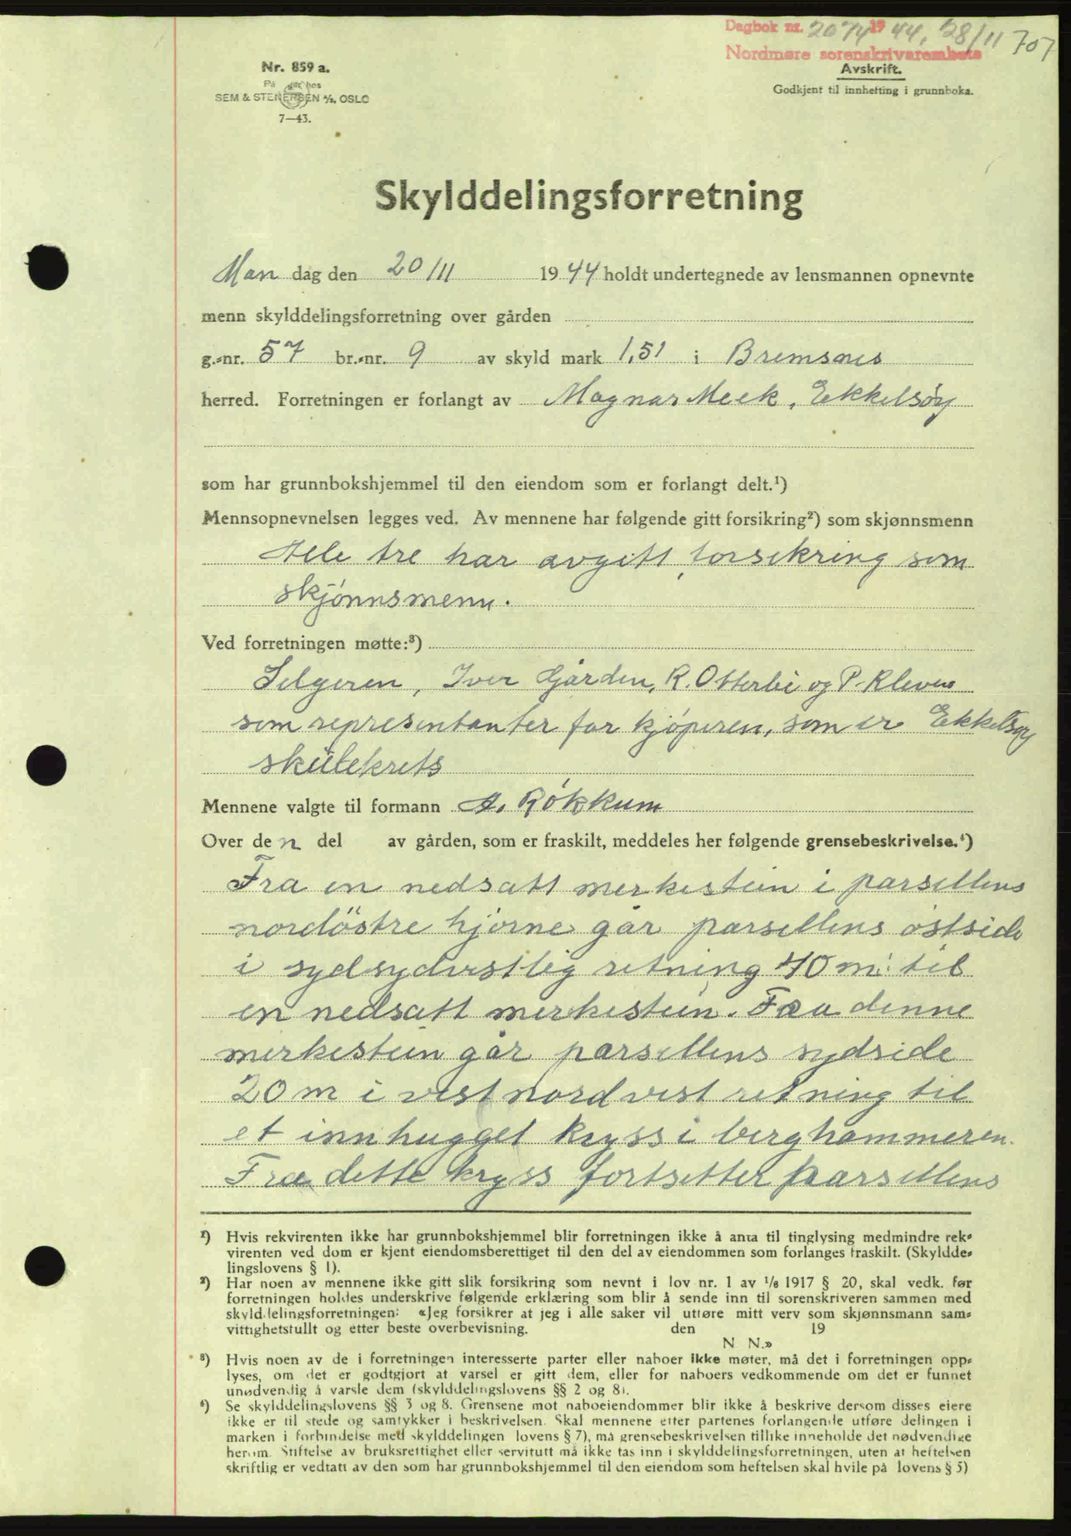 Dagbok nr. 2074 19 44, 28/11 707
Nordmøre sorenskrivarembete
Nr. 859 a.
På hos
SEM & STENERSEN A/S, OSLO
7—43.
Avskrift.
Godkjent til innhefting i grunnboka.
Skylddelingsforretning
Man dag den 20/11 1944 holdt undertegnede av lensmannen opnevnte
menn skylddelingsforretning over gården
g.-nr. 57 br.-nr. 9 av skyld mark 1,51 i Bremsnes
herred. Forretningen er forlangt av Magnar Meek, Ekkelsøy
som har grunnbokshjemmel til den eiendom som er forlangt delt.¹)
Mennsopnevnelsen legges ved. Av mennene har følgende gitt forsikring²) som skjønnsmenn
Alle tre har avgitt forsikring som
skjønnsmenn.
Ved forretningen møtte:³)
Selgeren, Iver Gården, R. Otterlei og P. Kleven
som representanter for kjøperen, som er Ekkelsøy
skulekrets
Mennene valgte til formann A. Røkkum
Over den del av gården, som er fraskilt, meddeles her følgende grensebeskrivelse.⁴)
Fra en nedsatt merkestein i parsellens
nordöstre hjörne går parsellens östside
i sydsydvestlig retning 40 m. til
en nedsatt merkestein. Fra denne
merkestein går parsellens sydside
20 m i vestnordvest retning til
et innhugget kryss i berghammeren.
Fra dette kryss fortsetter parsellens
¹) Hvis rekvirenten ikke har grunnbokshjemmel blir forretningen ikke å anta til tinglysing medmindre rek-
virenten ved dom er kjent eiendomsberettiget til den del av eiendommen som forlanges fraskilt. (Skyldde-
lingslovens § 1).
²) Har noen av mennene ikke gitt slik forsikring som nevnt i lov nr. 1 av 1/6 1917 § 20, skal vedk. før
forretningen holdes underskrive følgende erklæring som blir å sende inn til sorenskriveren sammen med
skylddelingsforretningen: «Jeg forsikrer at jeg i alle saker vil utføre mitt verv som skjønnsmann sam-
vittighetsfullt og etter beste overbevisning. den 19
N. N.»
³) Hvis noen av de i forretningen interesserte parter eller naboer ikke møter, må det i forretningen opp-
lyses, om det er godtgjort at varsel er gitt dem, eller for naboers vedkommende om det er funnet
unødvendig å varsle dem (skylddelingslovens §§ 2 og 8).
⁴) Se skylddelingslovens §§ 3 og 8. Grensene mot naboeiendommer blir ikke å beskrive dersom disses eiere
ikke er til stede og samtykker i beskrivelsen. Skal mennene etter partenes forlangende utføre delingen i
marken i forbindelse med skylddelingen lovens § 7), må grensebeskrivelsen tillike inneholde det nødvendige
herom. Stiftelse av bruksrettighet eller servitutt må ikke tas inn i skylddelingsforretningen, uten at heftelsen
skriftlig er vedtatt av den som har grunnbokshjemmel til den eiendom som heftelsen skal hvile på lovens § 5)